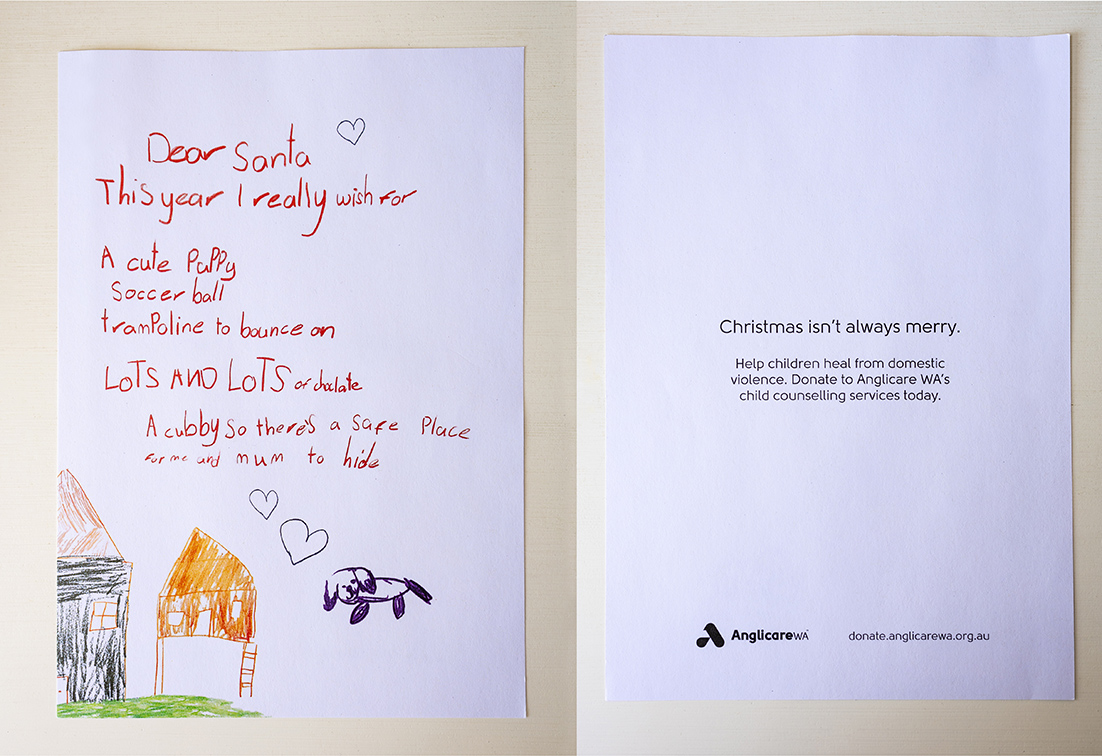 Dear Santa
This year I really wish for
A cute PuPPy
Soccer ball
tramPoline to bounce on
LoTS AND LoTS of choclate
A cubby So there's a safe Place
for me and mum to hide
Christmas isn't always merry.
Help children heal from domestic
violence. Donate to Anglicare WA's
child counselling services today.
Anglicare WA
donate.anglicarewa.org.au